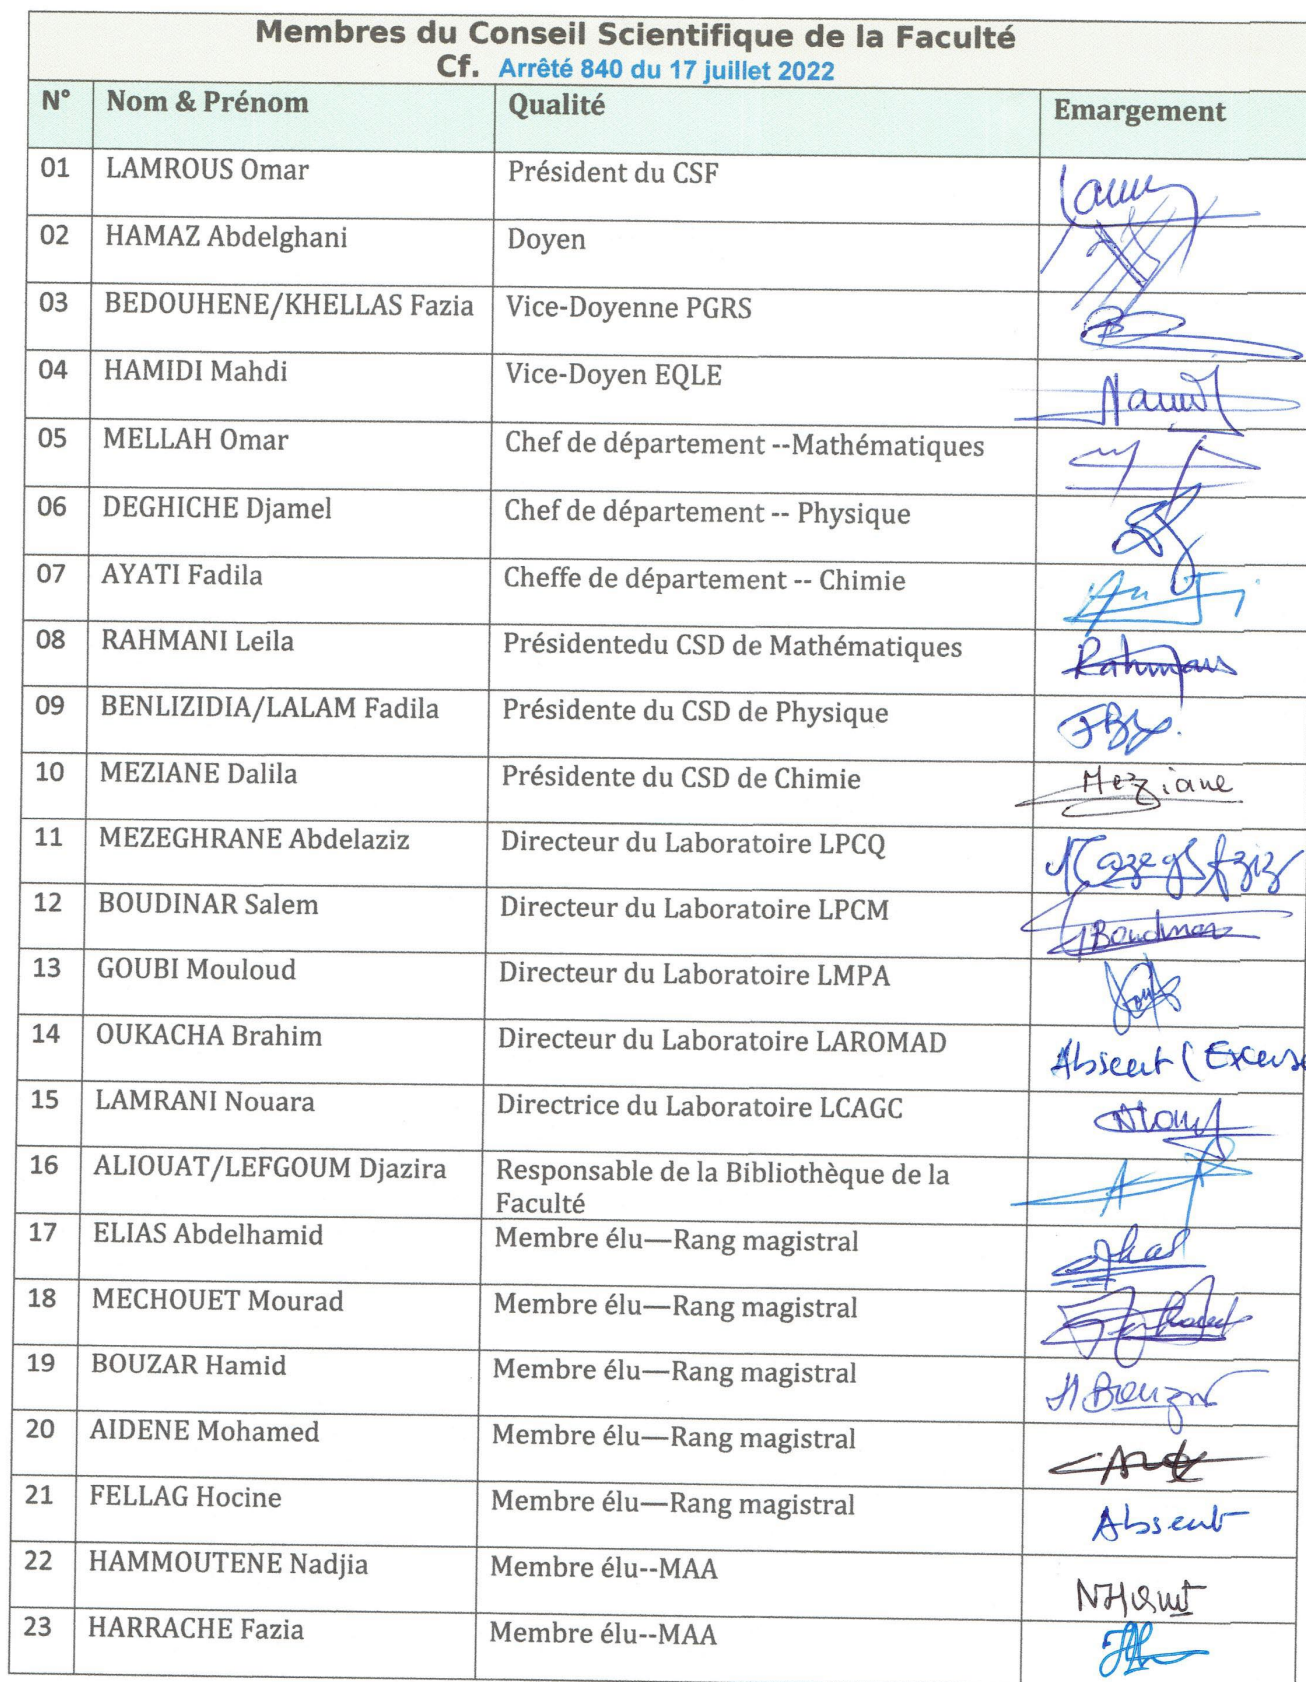 Membres du Conseil Scientifique de la Faculté
Cf. Arrêté 840 du 17 juillet 2022
N° Nom & Prénom Qualité Emargement
01 LAMROUS Omar Président du CSF
02 HAMAZ Abdelghani Doyen
03 BEDOUHENE/KHELLAS Fazia Vice-Doyenne PGRS
04 HAMIDI Mahdi Vice-Doyen EQLE
05 MELLAH Omar Chef de département --Mathématiques
06 DEGHICHE Djamel Chef de département -- Physique
07 AYATI Fadila Cheffe de département -- Chimie
08 RAHMANI Leila Présidentedu CSD de Mathématiques
09 BENLIZIDIA/LALAM Fadila Présidente du CSD de Physique
10 MEZIANE Dalila Présidente du CSD de Chimie Meziane
11 MEZEGHRANE Abdelaziz Directeur du Laboratoire LPCQ
12 BOUDINAR Salem Directeur du Laboratoire LPCM
13 GOUBI Mouloud Directeur du Laboratoire LMPA
14 OUKACHA Brahim Directeur du Laboratoire LAROMAD Absent (Excusé
15 LAMRANI Nouara Directrice du Laboratoire LCAGC
16 ALIOUAT/LEFGOUM Djazira Responsable de la Bibliothèque de la
Faculté
17 ELIAS Abdelhamid Membre élu—Rang magistral
18 MECHOUET Mourad Membre élu—Rang magistral
19 BOUZAR Hamid Membre élu—Rang magistral
20 AIDENE Mohamed Membre élu—Rang magistral
21 FELLAG Hocine Membre élu—Rang magistral Absent
22 HAMMOUTENE Nadjia Membre élu--MAA
23 HARRACHE Fazia Membre élu--MAA